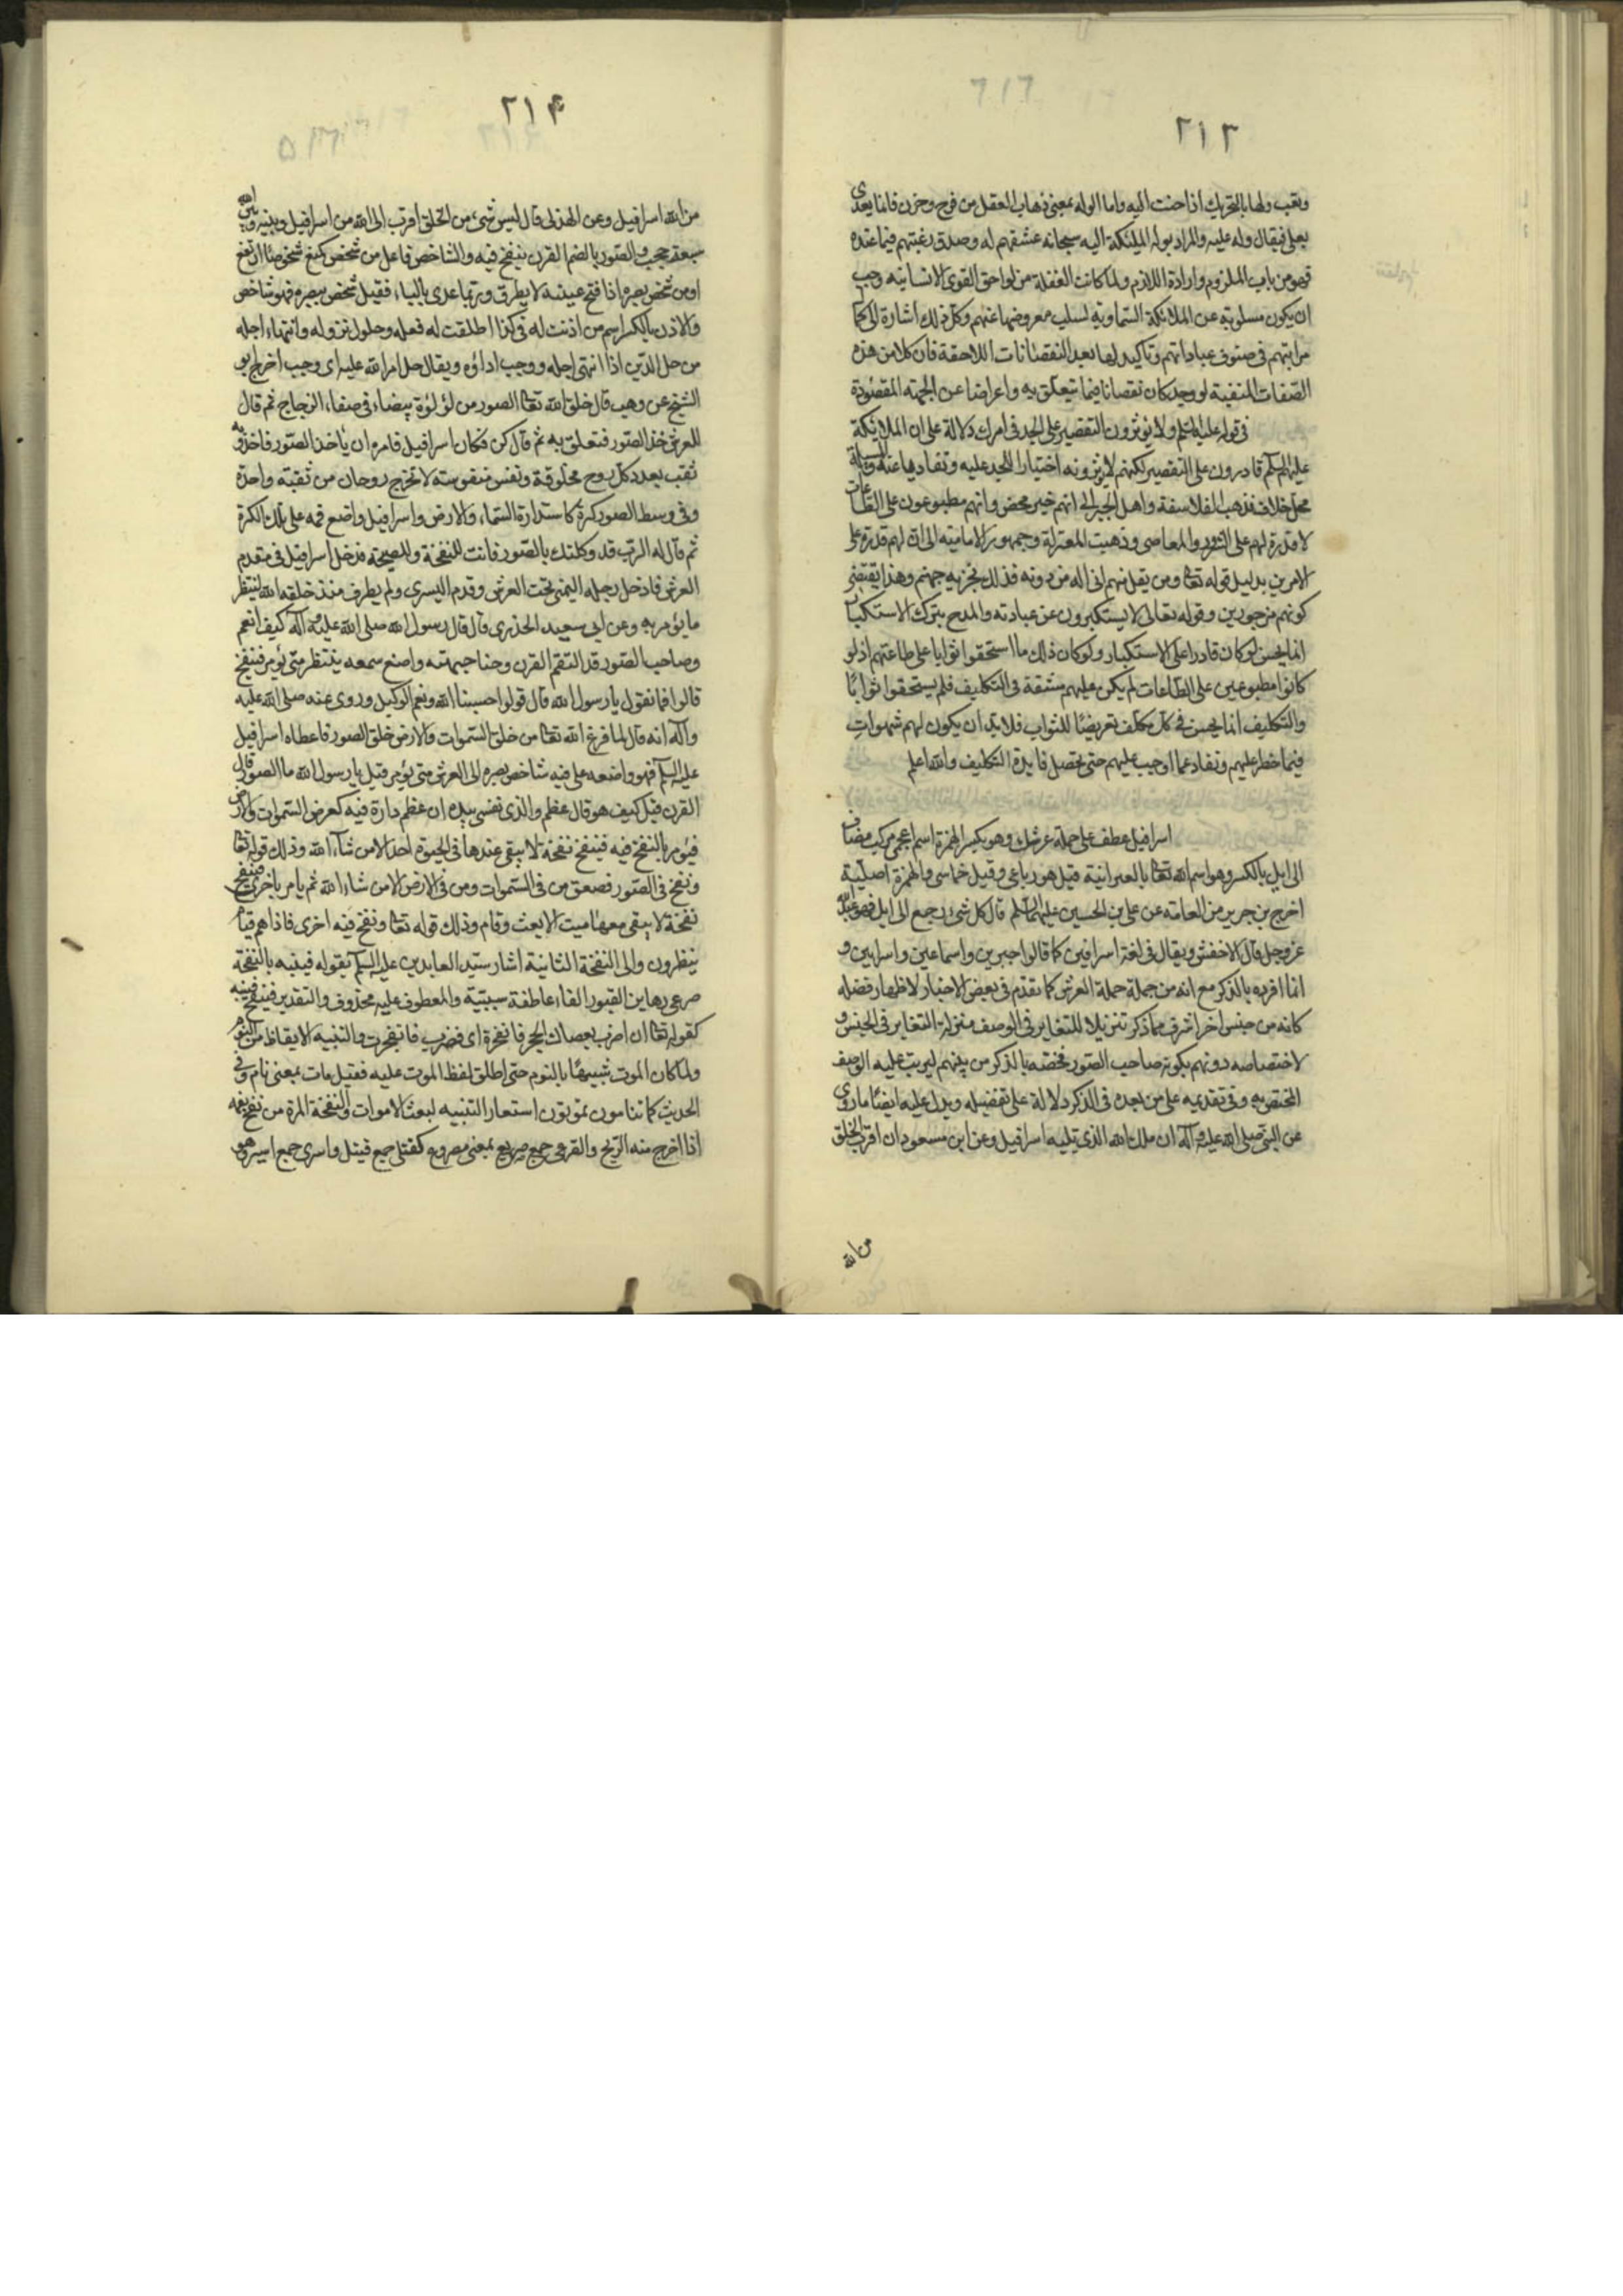 ٢١٣
وتعب ولها بالتحريك اذا حنت اليه واما الوله بمعنى ذهاب العقل من فرح وحزن فانما يعدى
بعلى فيقال وله عليه والمراد بوله الملئكة اليه سبحانه عشقهم له وصدق رغبتهم فيما عنده
فهو من باب الملزوم وارادة اللازم ولما كانت الغفلة من لواحق القوى الانسانيه وجب
ان يكون مسلوبة عن الملائكة السماوية لسلب معروضها عنهم وكل ذلك اشارة الى كمال
مراتبهم في صنوف عباداتهم وتاكيد لها بعد النقصانات اللاحقة فان كلا من هذه
الصفات المنفية لو وجد كان نقصانا فيما يتعلق به واعراضا عن الجهة المقصودة
في قوله عليه السلم ولا يؤثرون التقصير على الجد في امرك دلالة على ان الملائكة
عليهم السلم قادرون على التقصير لكنهم لا يؤثرونه اختيارا للجد عليه وتفاديا عنه والمسئلة
محل خلاف فذهب الفلاسفة واهل الجبر الى انهم خير محض وانهم مطبوعون على الطاعات
لا قدرة لهم على الشرور والمعاصى وذهبت المعتزلة وجمهور الامامية الى ان لهم قدرة على
الامرين بدليل قوله تعالى ومن يقل منهم انى اله من دونه فذلك نجزيه جهنم وهذا يقتضى
كونهم مزجورين وقوله تعالى لا يستكبرون عن عبادته والمدح بترك الاستكبار
انما يحسن لو كان قادرا على الاستكبار ولو كان ذلك ما استحقوا ثوابا على طاعتهم اذ لو
كانوا مطبوعين على الطاعات لم يكن عليهم مشقة في التكليف فلم يستحقوا ثوابا
والتكليف انما يحسن في كل مكلف تعريضا للثواب فلا بد ان يكون لهم شهوات
فيما خطر عليهم وتفاد عما اوجب عليهم حتى تحصل فايدة التكليف والله اعلم
اسرافيل عطف على حملة عرشك وهو بكسر الهمزة اسم اعجمى مركب مضاف
الى ايل بالكسر وهو اسم الله تعالى بالعبرانية قيل هو رباعى وقيل خماسى والهمزة اصلية
اخرج بن جرير من العامة عن على بن الحسين عليهما السلم قال كل شئ رجع الى ايل فهو عبد الله
عز وجل قال الاخفش ويقال في لغة اسرافين كما قالوا جبرين واسماعين واسرايين و
انما افرده بالذكر مع انه من جملة حملة العرش كما تقدم في بعض الاخبار لاظهار فضله
كانه من جنس اخر اشرف مما ذكر تنزيلا للتغاير في الوصف منزلة التغاير في الجنس و
لاختصاصه دونهم بكونه صاحب الصور فخصه بالذكر من بينهم ليرتب عليه الوصف
المختص به وفى تقديمه على من بعده في الذكر دلالة على تفضيله ويدل عليه ايضا ما روى
عن النبي صلى الله عليه وآله ان ملك الله الذى يليه اسرافيل وعن ابن مسعود ان اقرب الخلق
من الله
٢١۴
من الله اسرافيل وعن الهذلى قال ليس شئ من الخلق اقرب الى الله من اسرافيل وبينه وبين الله
سبعة حجب والصور بالضم القرن ينفخ فيه والشاخص فاعل من شخص كمنع شخوصا اذا ارتفع
او من شخص بصره اذا فتح عينيه لا يطرف وربما عدى بالباء فقيل شخص ببصره فهو شاخص
والاذن بالكسر اسم من اذنت له في كذا اطلقت له فعله وحلول نزوله وانتهاء اجله
من حل الدين اذا انتهى اجله ووجب اداؤه ويقال حل امر الله عليه اى وجب اخرج ابو
الشيخ عن وهب قال خلق الله تعالى الصور من لؤلؤة بيضاء في صفاء الزجاج ثم قال
للعرش خذ الصور فتعلق به ثم قال كن فكان اسرافيل فامره ان ياخذ الصور فاخذه وبه
ثقب بعدد كل روح مخلوقة ونفس منفوسة لا تخرج روحان من ثقبته واحدة
وفى وسط الصور كرة كاستدارة السماء والارض واسرافيل واضع فمه على تلك الكرة
ثم قال له الرب قد وكلتك بالصور فانت للنفخة وللصيحة فدخل اسرافيل في مقدم
العرش فادخل رجله اليمنى تحت العرش وقدم اليسرى ولم يطرف منذ خلقه الله لينتظر
ما يؤمر به وعن ابى سعيد الخدرى قال قال رسول الله صلى الله عليه وآله كيف انعم
وصاحب الصور قد التقم القرن وحنا جبهته واصغ سمعه ينتظر متى يؤمر فينفخ
قالوا فما نقول يا رسول الله قال قولوا حسبنا الله ونعم الوكيل وروى عنه صلى الله عليه
وآله انه قال لما فرغ الله تعالى من خلق السموات والارض خلق الصور فاعطاه اسرافيل
عليه السلم فهو واضعه على فيه شاخص بصره الى العرش متى يؤمر قيل يا رسول الله ما الصور قال
القرن قيل كيف هو قال عظم والذى نفسى بيده ان عظم دارة فيه كعرض السموات والارض
فيؤمر بالنفخ فيه فينفخ نفخة لا يبقى عندها في الحيوة احد الا من شآء الله وذلك قوله تعالى
ونفخ في الصور فصعق من في السموات ومن في الارض الا من شاء الله ثم يامر باخرى فينفخ
نفخة لا يبقى معها ميت الا بعث وقام وذلك قوله تعالى ونفخ فيه اخرى فاذا هم قيام
ينظرون والى النفخة الثانية اشار سيد العابدين عليه السلم بقوله فينبه بالنفخة
صرعى رهاين القبور الفاء عاطفة سببية والمعطوف عليه محذوف والتقدير فينفخ فينبه
كقوله تعالى ان اضرب بعصاك الحجر فانفجرة اى فضرب فانفجرت والتنبيه الايقاظ من النوم
ولما كان الموت شبيها بالنوم حتى اطلق لفظ الموت عليه فقيل مات بمعنى نام وفى
الحديث كما تنامون تموتون استعار التنبيه لبعث الاموات والنفخة المرة من نفخ بفمه
اذا اخرج منه الريح والصرعى جمع صريع بمعنى مصروع كقتلى جمع قتيل واسرى جمع اسير وهو